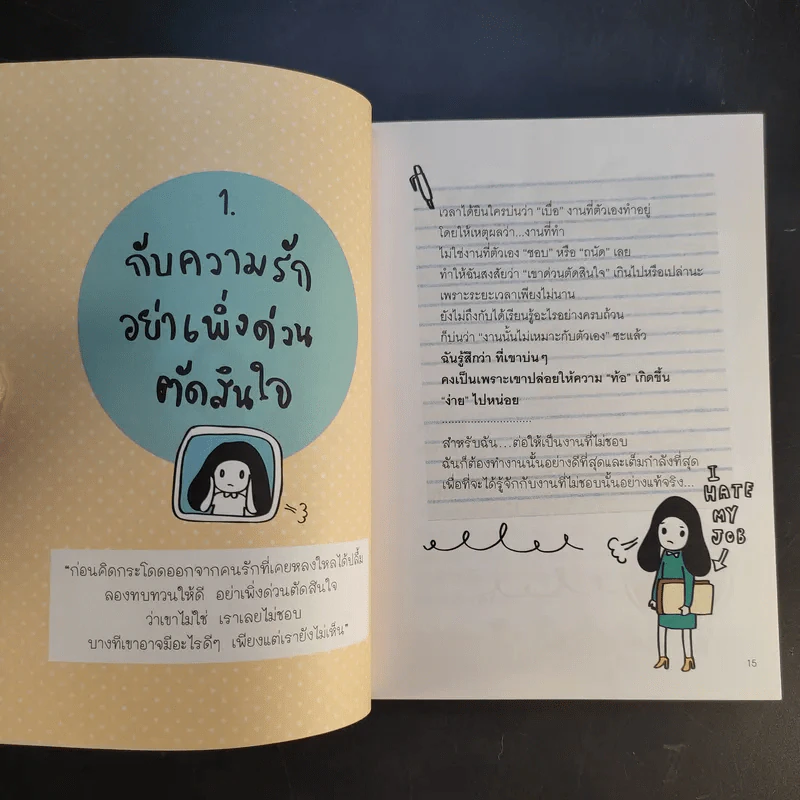 1.
กับความรัก
อย่าเพิ่งด่วน
ตัดสินใจ
"ก่อนคิดกระโดดออกจากคนรักที่เคยหลงใหลได้ปลื้ม
ลองทบทวนให้ดี อย่าเพิ่งด่วนตัดสินใจ
ว่าเขาไม่ใช่ เราเลยไม่ชอบ
บางทีเขาอาจมีอะไรดีๆ เพียงแต่เรายังไม่เห็น"
เวลาได้ยินใครบ่นว่า "เบื่อ" งานที่ตัวเองทำอยู่
โดยให้เหตุผลว่า...งานที่ทำ
ไม่ใช่งานที่ตัวเอง "ชอบ" หรือ "ถนัด" เลย
ทำให้ฉันสงสัยว่า "เขาด่วนตัดสินใจ" เกินไปหรือเปล่านะ
เพราะระยะเวลาเพียงไม่นาน
ยังไม่ถึงกับได้เรียนรู้อะไรอย่างครบถ้วน
ก็บ่นว่า "งานนั้นไม่เหมาะกับตัวเอง" ซะแล้ว
ฉันรู้สึกว่า ที่เขาบ่นๆ
คงเป็นเพราะเขาปล่อยให้ความ "ท้อ" เกิดขึ้น
"ง่าย" ไปหน่อย
..............................
สำหรับฉัน...ต่อให้เป็นงานที่ไม่ชอบ
ฉันก็ต้องทำงานนั้นอย่างดีที่สุดและเต็มกำลังที่สุด
เพื่อที่จะได้รู้จักกับงานที่ไม่ชอบนั้นอย่างแท้จริง...
I
HATE
MY
JOB
15